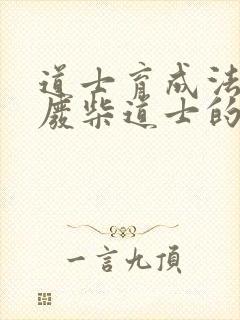 道士育成法
廢柴道士的
一言九頂